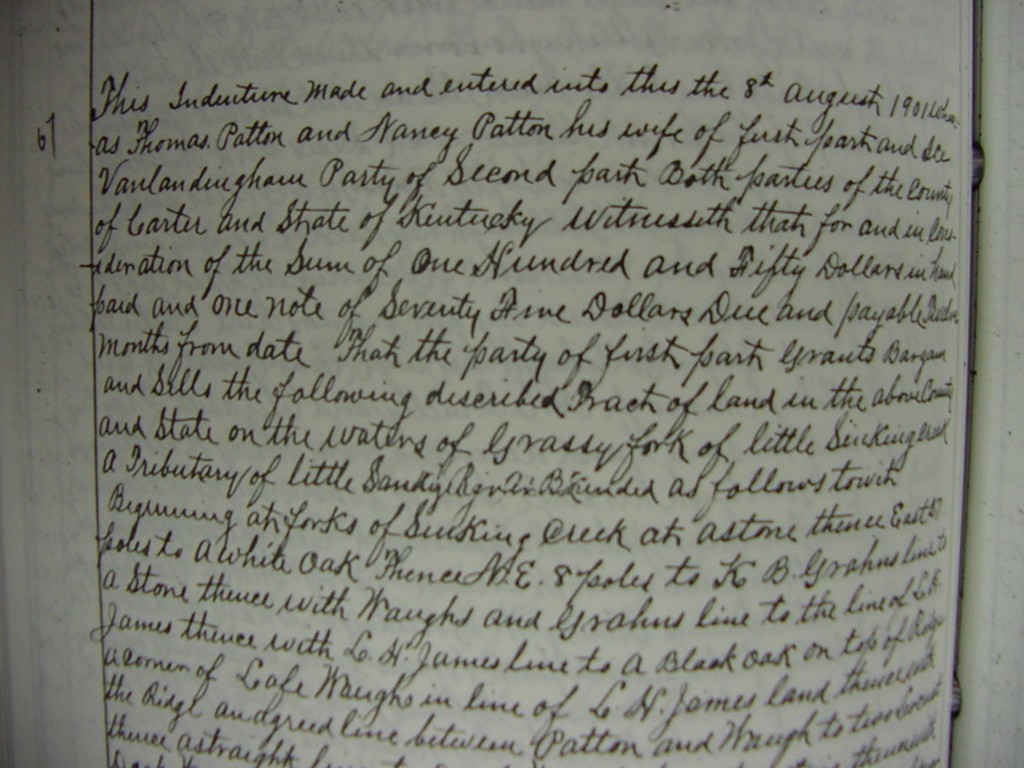 This Indenture Made and entered into this the 8th August 1901
67
as Thomas. Patton and Nancy Patton his wife of first part and
Vanlandingham Party of Second part Both parties of the County
of Carter and State of Kentucky Witnesseth that for and in Con-
sideration of the Sum of One Hundred and Fifty Dollars in hand
paid and one note of Seventy Five Dollars Due and payable Twelve
Months from date That the party of first part Grants Bargain
and Sells the following described Tract of land in the above County
and State on the waters of Grassy fork of little Sinking Creek
A Tributary of little Sandy River Bounded as follows towit
Beginning at forks of Sinking Creek at a stone thence East
poles to A White Oak Thence N.E. 8 poles to K B. Grahns line to
a Stone thence with Waughs and Grahns line to the line of L.H.
James thence with L. H. James line to A Black Oak on top of Ridge
a corner of Lafe Waughs in line of L. H. James land thence with
the Ridge an agreed line between Patton and Waugh to two
thence a straight line to